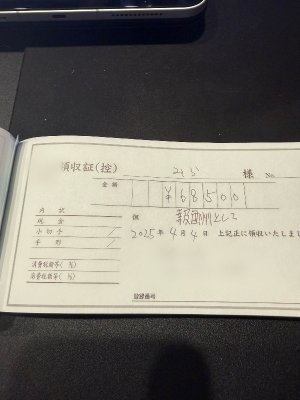 領収証(控) みそら 様 No.
金額 ¥68500
内訳 但 報酬として
現金 2025年4月4日 上記正に領収いたしました
小切手
手形
消費税額等( %)
消費税額等( %)
登録番号